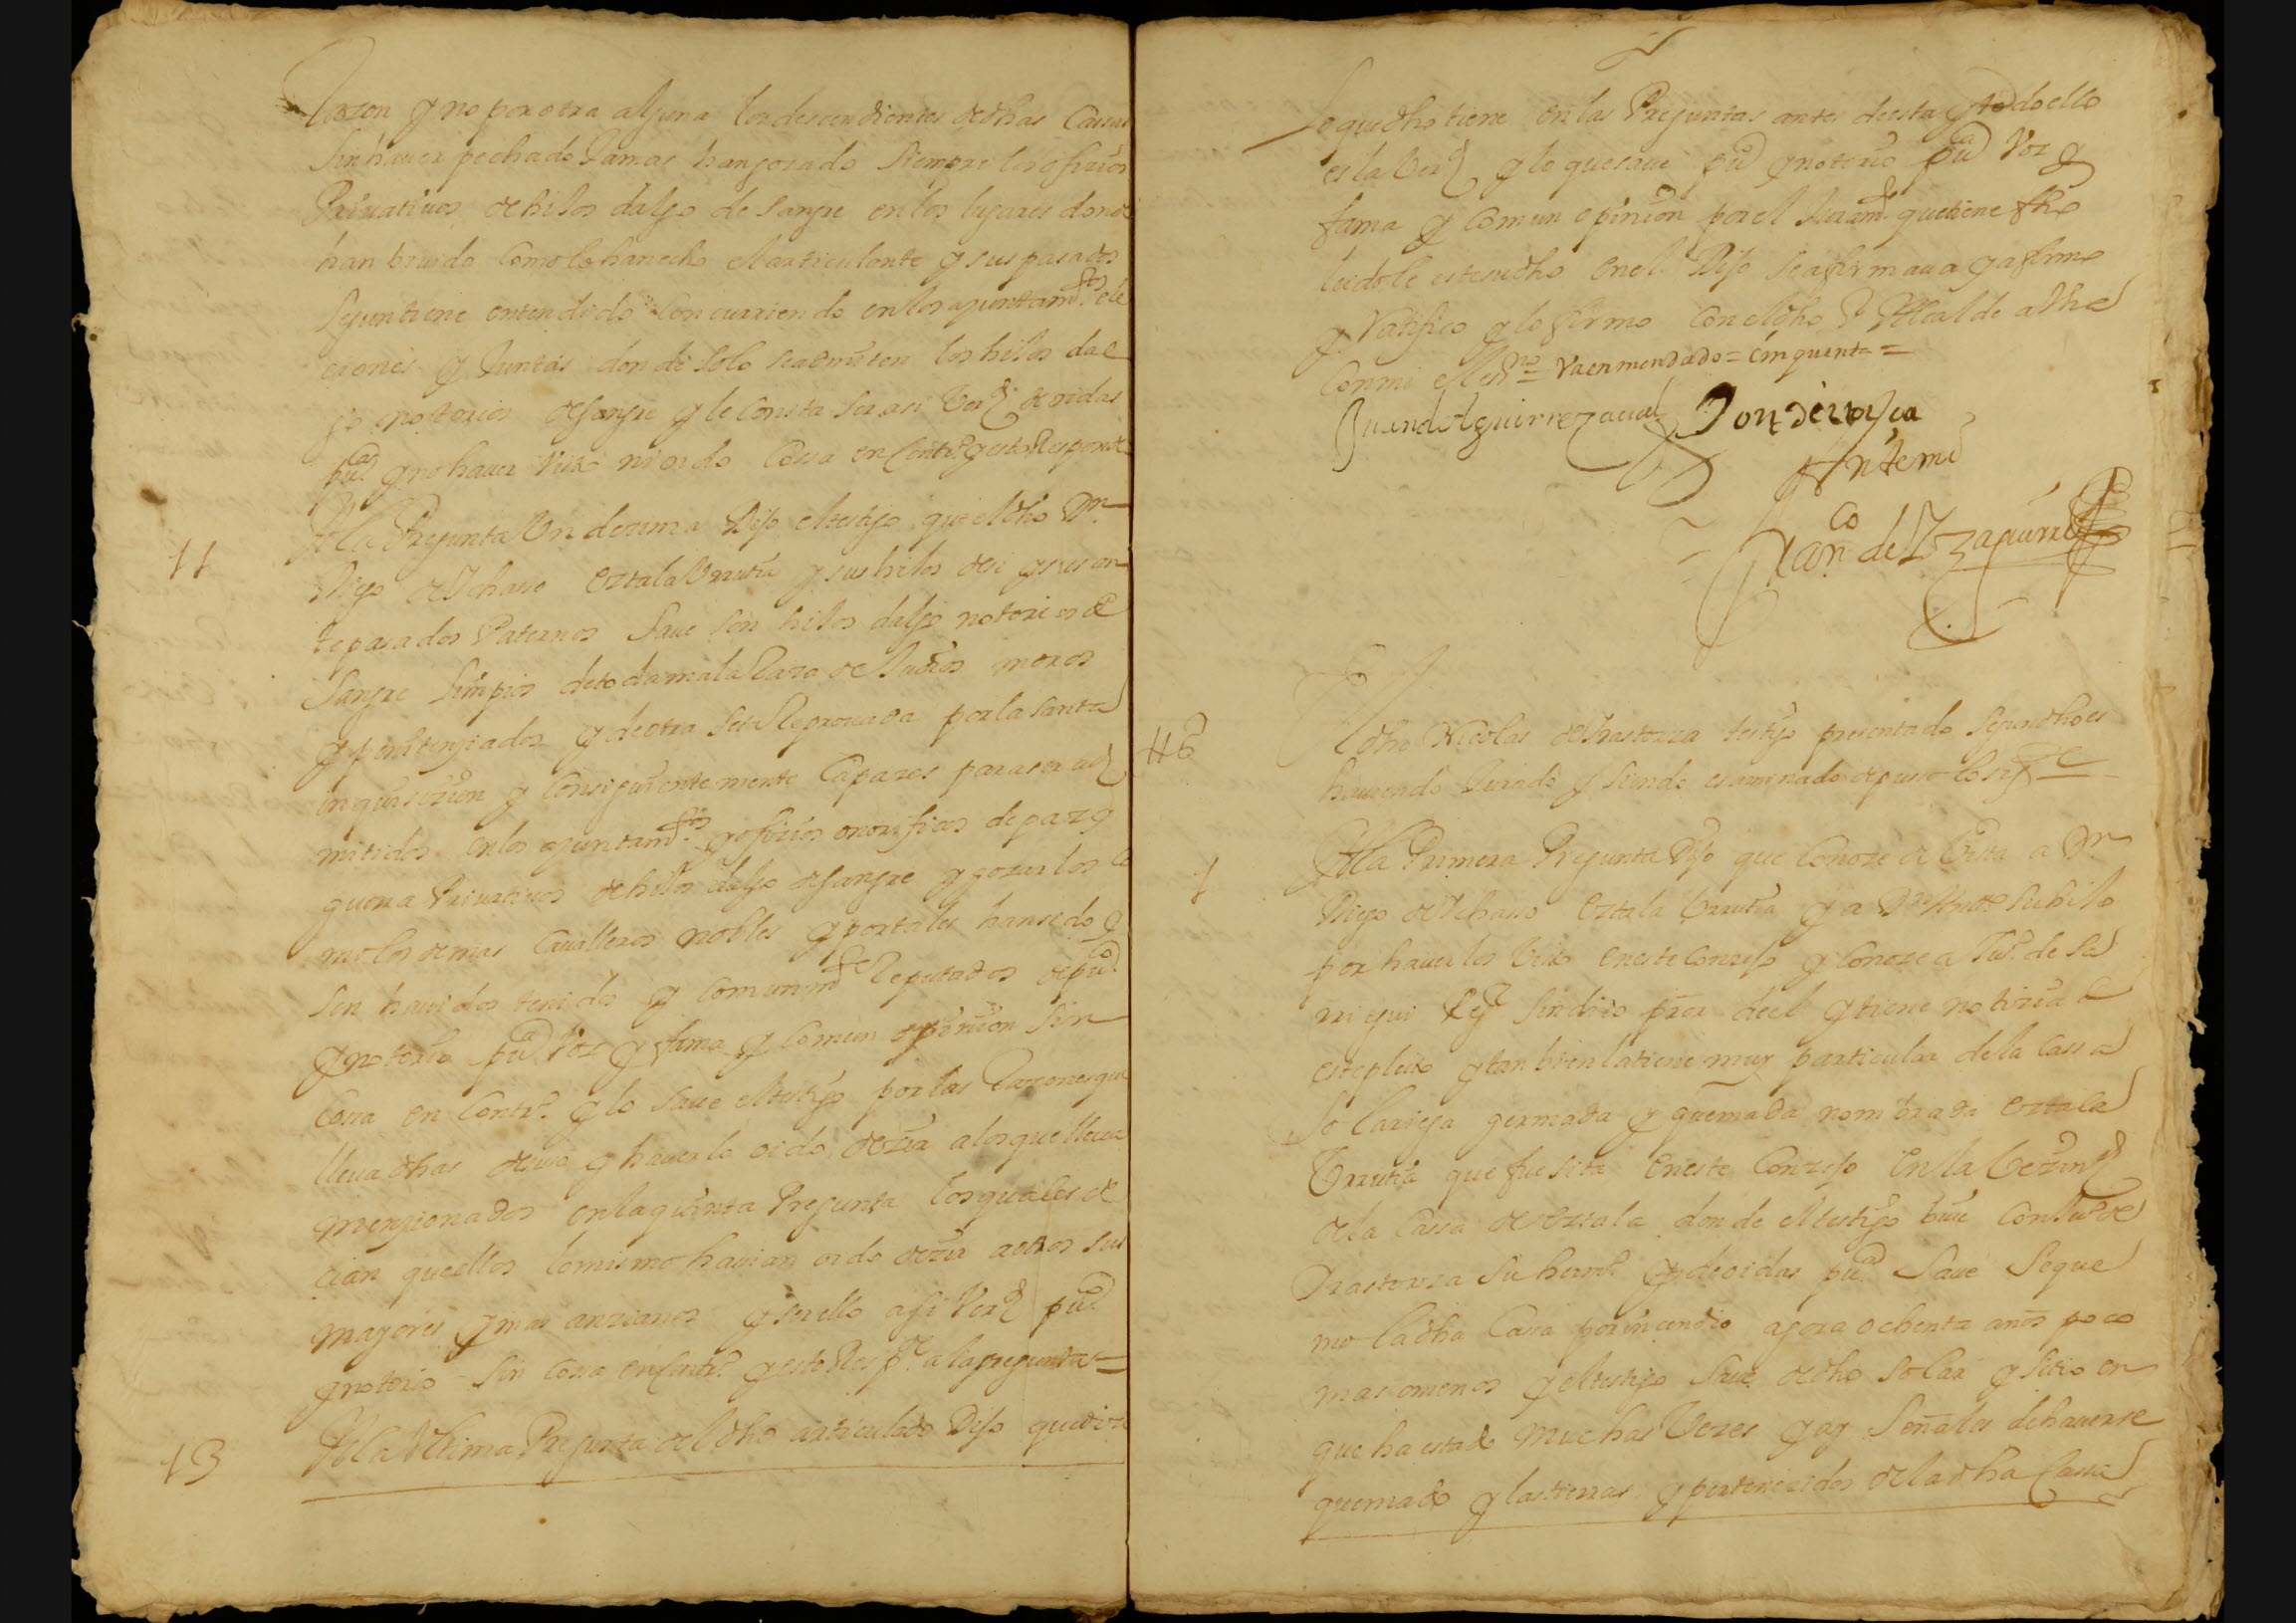 Razon y no por otra alguna los descendientes de dhas Casas
sin haver pechado Jamas han gozado siempre los ofizios
Privativos de hijos dalgo de sangre en los lugares donde
han bivido como lo han echo el articulante y sus pasados
segun tiene entendido concurriendo en los ayuntam.tos ele
ciones y Juntas donde solo se admiten los hijos dal
go notorios de sangre y le consta ser asi Verd de oidas
pu.cas y no haver visto ni oido Cossa en Contr.o y esto Responde
11 A la Pregunta Undezima Dijo el testigo que el dho Dn
Diego de Echave Oztala Urrutia y sus hijos de el y sus an
tepasados Paternos save son hijos dalgo notorios de
sangre limpios de toda mala Raza de Judios moros
y penitenziados y de otra seta Reprovada por la santa
inquisizion y consiguientemente Capazes para ser ad
mitidos en los ayuntam.tos y ofizios onorificos de paz y
guerra Privativos de hijos dalgo de sangre y gozar los co
mo los demas Cavalleros nobles y por tales han sido y
son havidos tenidos y comunm.te Reputados de pu.co
y notorio pu.ca Voz y fama y comun opinion sin
Cossa en Contr.o y lo save el testigo por las Razones que
lleva dhas de suso y haverlo oido dezir a los que lleva
menzionados en la quinta Pregunta los quales de
cian que ellos lo mismo havian oido dezir a otros sus
mayores y mas anzianos y ser ello asi Verd pu.co
y notorio sin cossa en Contr.o y esto Resp.de a la pregunta =
13 A la Ultima Pregunta del dho articulado Dijo que dize
lo que dho tiene en las Preguntas antes de esta y todo ello
es la Verd y lo que save pu.co y notorio pu.ca Voz y
fama y comun opinion por el Juram.to que tiene fho
leidole este su dho en el Dijo se afirmava y afirmo
y Ratifico y lo firmo con el dho S.r Alcalde al he
Con mi el ess.no = Va enmendado = cinquenta =
Juan de Aguirrezaval
Ante mi
Fran.co de Yzaguirre
#6 El dho Nicolas de Irastorza testigo presentado segun dho es
haviendo Jurado y siendo esaminado depuso lo sig.te
1 A la Primera Pregunta Dijo que conoze de Vista a Dn
Diego de Echave Oztala Urrutia y a Dn su hijo
por haverlos Visto en este Conzejo y conoze a Ju.o de
Sindico pror de el y tiene notizia de
este pleito y tanbien la tiene muy particular de la Cassa
solariega yermada y quemada nombrada Oztala
Urrutia que fue sita en este Conzejo en la Vezind
de la Cassa de Oztala donde el testigo bive con Ju.o de
Irastorza su herm.o y de oidas pu.cas save se que
mo la dha Cassa por incendio agora ochenta años poco
mas o menos y el testigo save dicho solar y sitio en
que ha estado muchas Vezes y ay señales de haverse
quemado y las tierras y pertenecidos de la dha Cassa